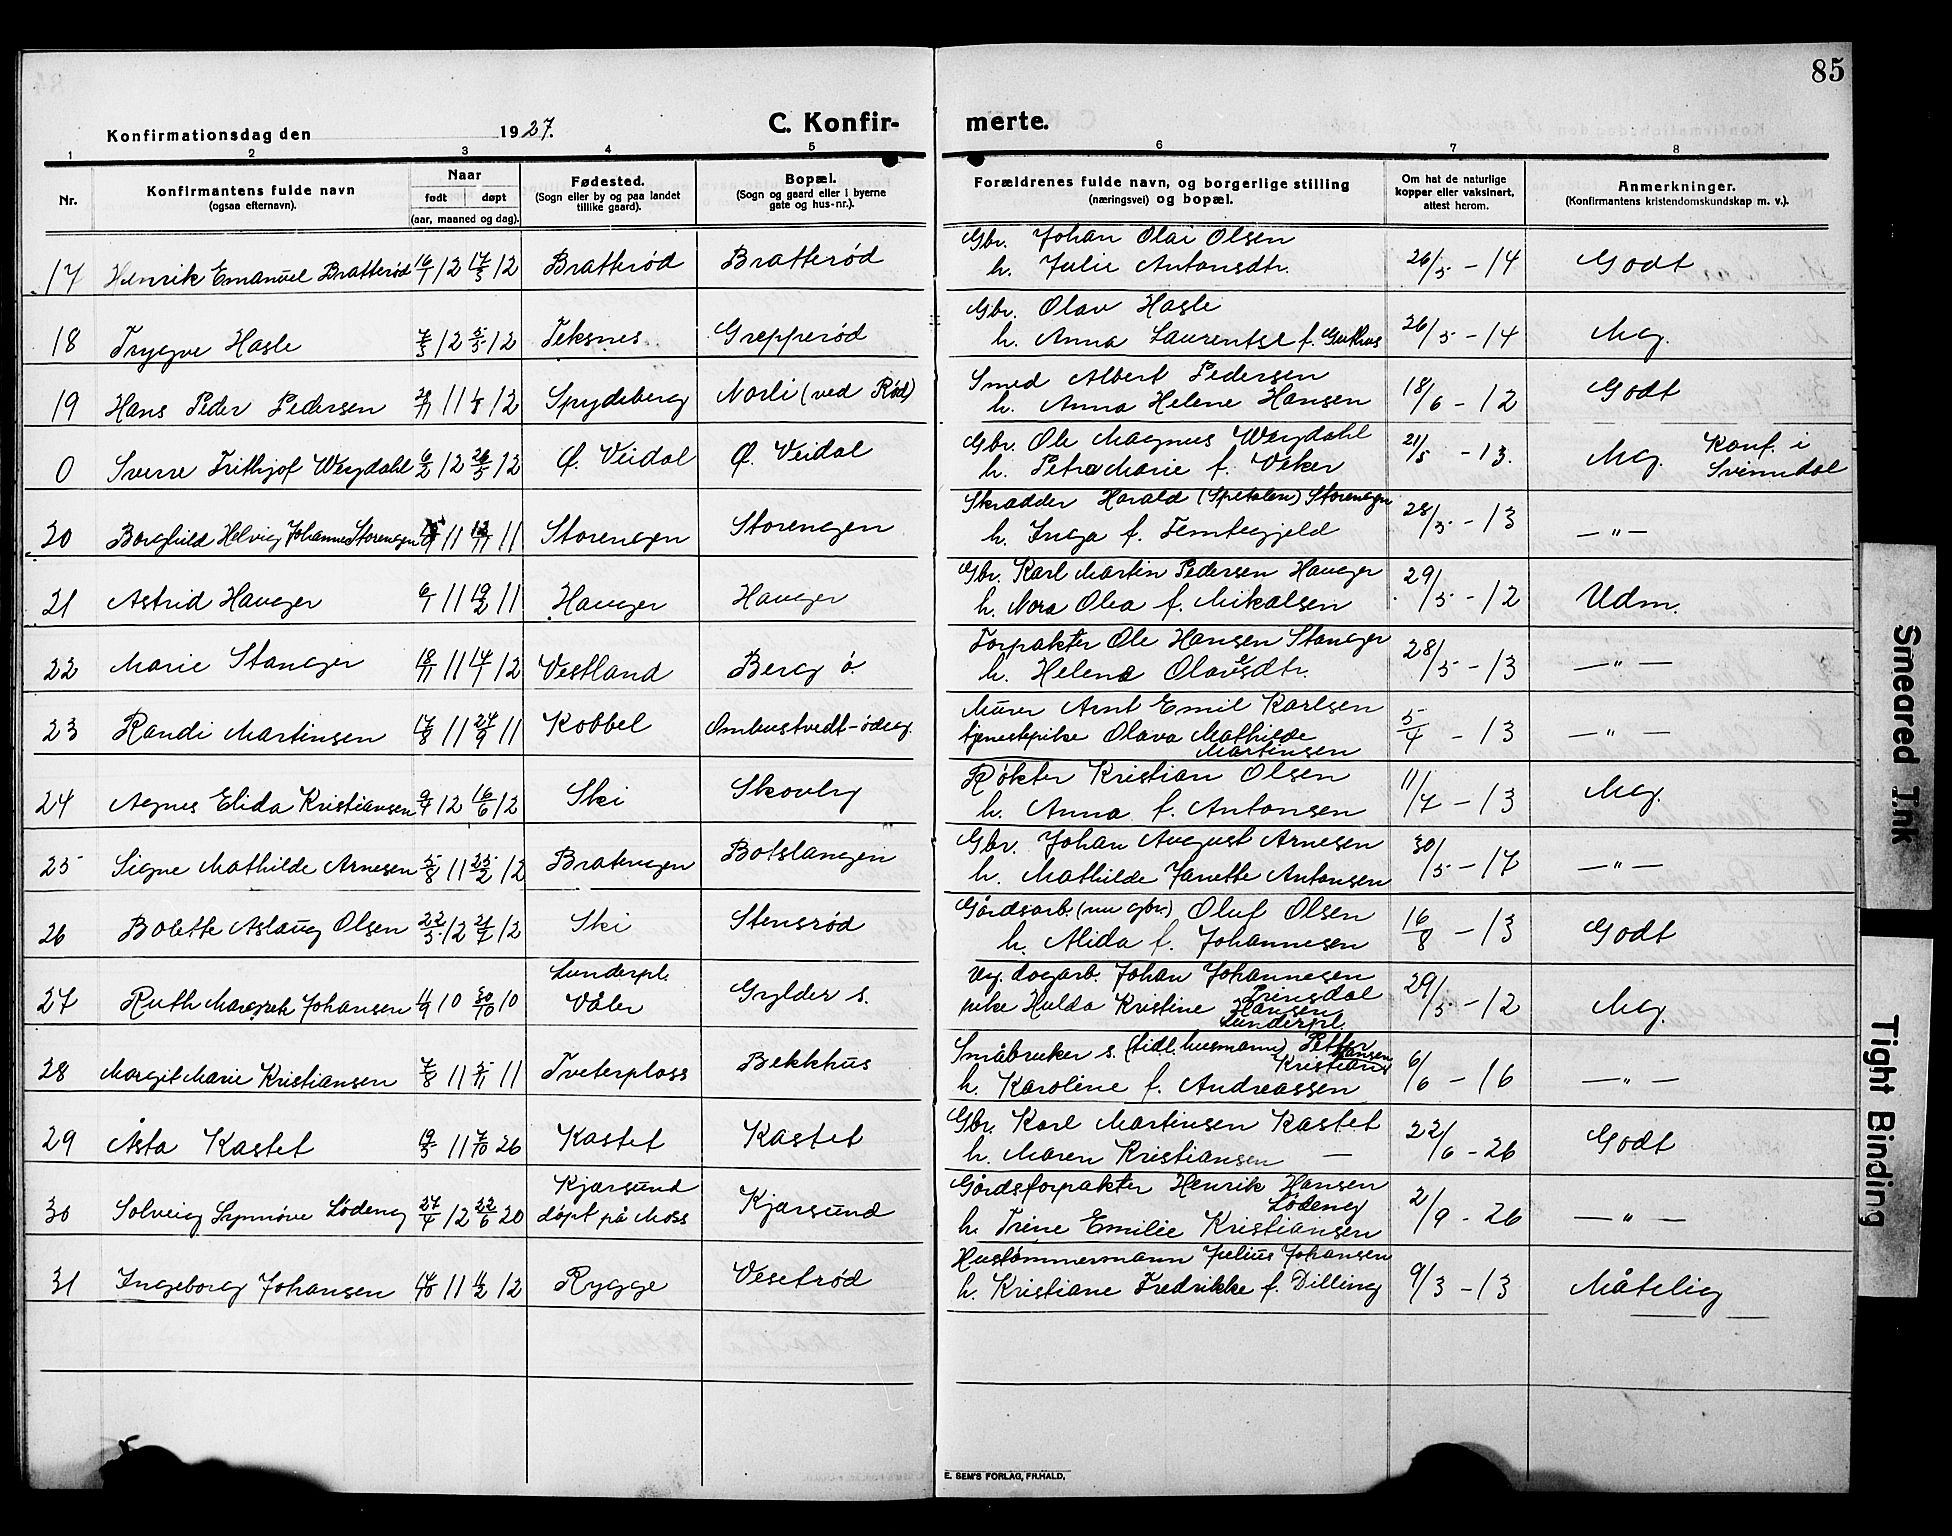 85
Konfirmationsdag den 1927. C. Konfir- merte.
1 2 3 4 5 6 7 8
Nr. Konfirmantens fulde navn (ogsaa efternavn). Naar født døpt (aar, maaned og dag). Fødested. (Sogn eller by og paa landet tillike gaard). Bopæl. (Sogn og gaard eller i byerne gate og hus-nr.). Forældrenes fulde navn, og borgerlige stilling (næringsvei) og bopæl. Om hat de naturlige kopper eller vaksinert, attest herom. Anmerkninger. (Konfirmantens kristendomskundskap m. v.).
17 Henrik Emanuel Bratterød 16/1 12 17/3 12 Bratterød Bratterød Gbr. Johan Olai Olsen
h. Julie Antonsdtr. 26/5 - 14 Godt
18 Trygve Hasle 12 12 Teksnes Grepperød Gbr. Olav Hasle
h. Anna Laurentse f. 26/5 - 14 Mg.
19 Hans Peder Pedersen 11 12 Spydeberg Norli (ved Rød) Smed Albert Pedersen
h. Anna Helene Hansen 18/6 - 12 Godt
0 Sverre Frithjof Weydahl 6/2 12 26/5 12 Ø. Veidal Ø. Veidal Gbr. Ole Magnus Weydahl
h. Petra Marie f. Veker 21/5 - 13. Mg. Konf. i Svinndal
20 Borghild Helvig Johanne Storengen 11 11 Storengen Storengen Skrædder Harald (Spetalen) Storengen
h. Inga f. Femtegjeld 28/5 - 13 — " —
21 Astrid Hauger 6/1 11 19/2 11 Hauger Hauger Gbr. Karl Martin Pedersen Hauger
h. Nora Olea f. Mikalsen 29/5 - 12 Udm.
22 Marie Stanger 19/11 11 12 Vestland Berg ø. Forpakter Ole Hansen Stanger
h. Helene Olavesdtr. 28/5 - 13 — " —
23 Randi Martinsen 17/8 11 24/9 11 Kobbel Ombustvedt-ødeg. Murer Arnt Emil Karlsen
tjenestepike Olava Mathilde
Martinsen 5/4 - 13 — " —
24 Agnes Elida Kristiansen 9/4 12 16/6 12 Ski Skovly Røkter Kristian Olsen
h. Anna f. Antonsen 11/7 - 13 Mg.
25 Signe Mathilde Arnesen 5/8 11 25/2 12 Bratengen Botslangen Gbr. Johan August Arnesen
h. Mathilde Janette Antonsen 30/5 - 17 — " —
26 Bolette Aslaug Olsen 22/5 12 21/7 12 Ski Stensrød Gårdsarb. (nu gbr.) Oluf Olsen
h. Alida f. Johannesen 16/8 - 13 Godt
27 Ruth Margrete Johansen 11/9 10 30/10 10 Sunderpl. Våler Gylder s. Ug. dagarb. Johan Johannesen
Prinsdal
pike Hulda Kristine Hansen
Sunderpl. 29/5 - 12 Mg.
28 Margit Marie Kristiansen 7/8 11 5/11 11 Tveterplass Bekkhus Småbruker s. (tidl. husmann) Petter
Hansen
Kristians
h. Karoline f. Andreassen 6/6 - 16 — " —
29 Åsta Kastet 19/5 11 7/10 26 Kastet Kastet Gbr. Karl Martinsen Kastet
h. Maren Kristiansen — 22/6 - 26 Godt
30 Solveig Synnøve Lødeng 27/4 12 22/6 20 Kjærsund døpt på Moss Kjærsund Gårdsforpakter Henrik Hansen
Lødeng
h. Trine Emilie Kristiansen 2/9 - 26 — " —
31 Ingeborg Johansen 14/10 11 11/2 12 Rygge Vesetrød Hustømmermann Julius Johansen
h. Kristiane Fredrikke f. Dilling 9/3 - 13 Måtelig
E. SEM'S FORLAG, FR.HALD,
Smeared Ink
Tight Binding